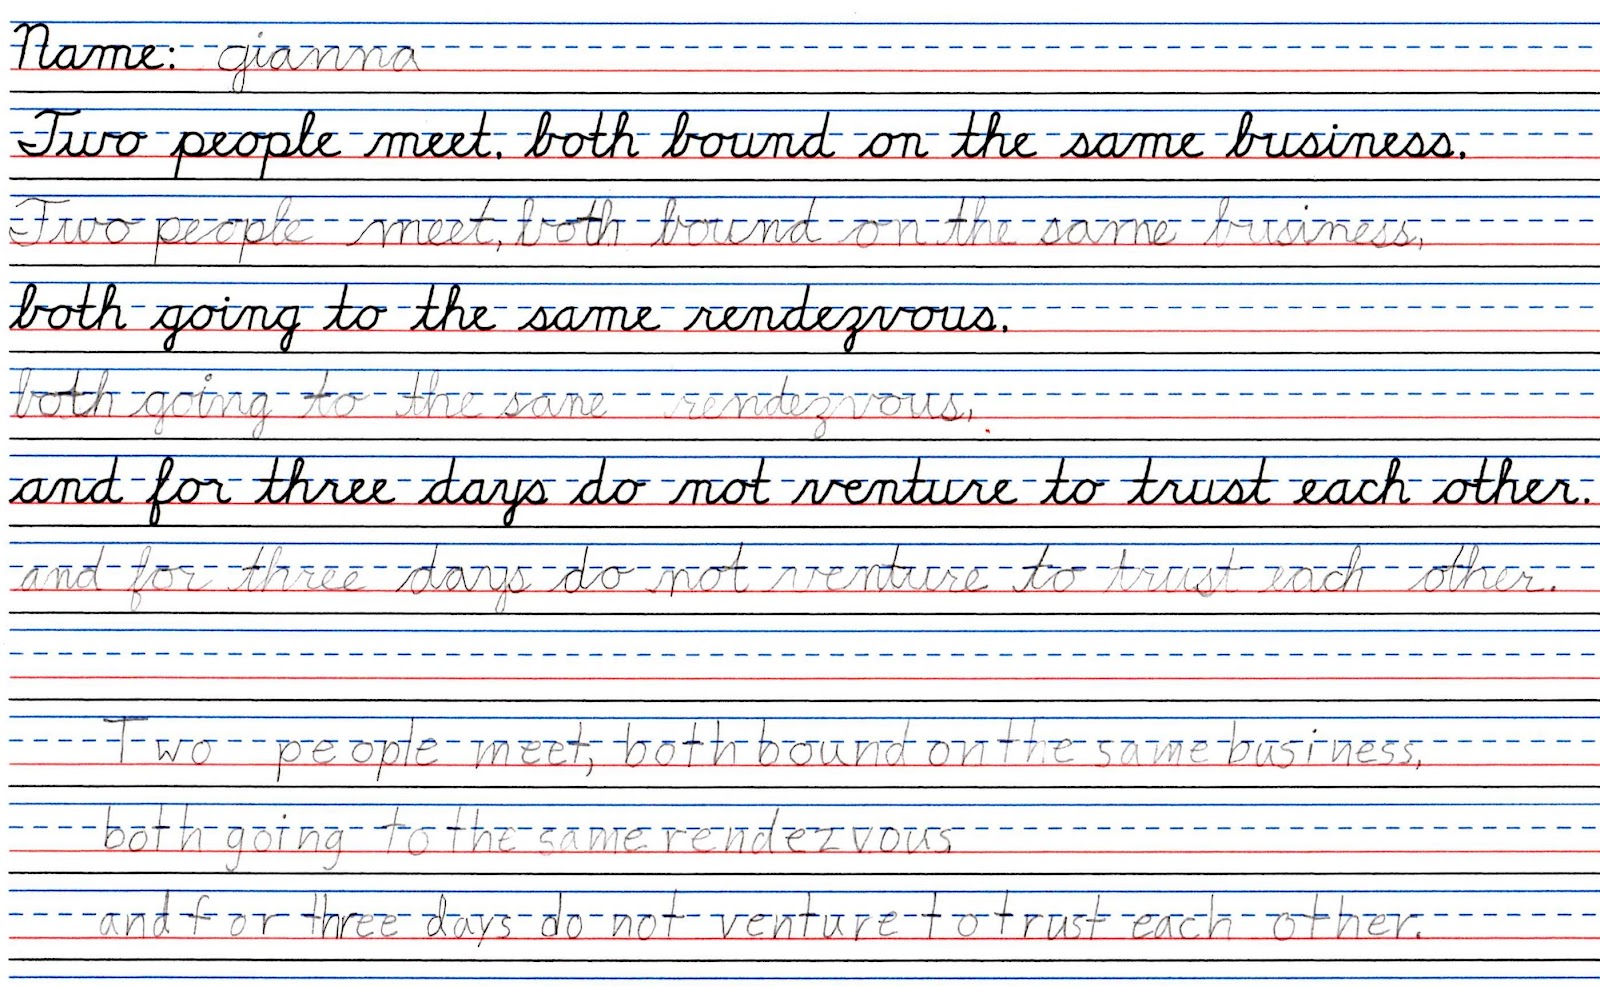 Name: gianna
Two people meet, both bound on the same business,
Two people meet, both bound on the same business,
both going to the same rendezvous,
both going to the sane rendezvous,
and for three days do not venture to trust each other.
and for three days do not venture to trust each other.
Two people meet, both bound on the same business,
both going to the same rendezvous
and for three days do not venture to trust each other.